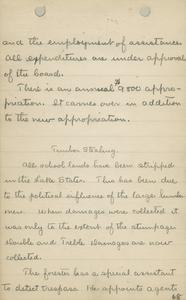 and the employment of assistance.
All expenditures are under approval
of the board.
There is an annual $9000 appro-
priation. It carries over in addition
to the new appropriation.
Timber Stealing.
All school lands have been stripped
in the Lake States. This has been due
to the political influence of the large lumber
men. When damages were collected it
was only to the extent of the stumpage
Double and treble damages are now
collected.
The forester has a special assistant
to detect trespass. He appoints agents